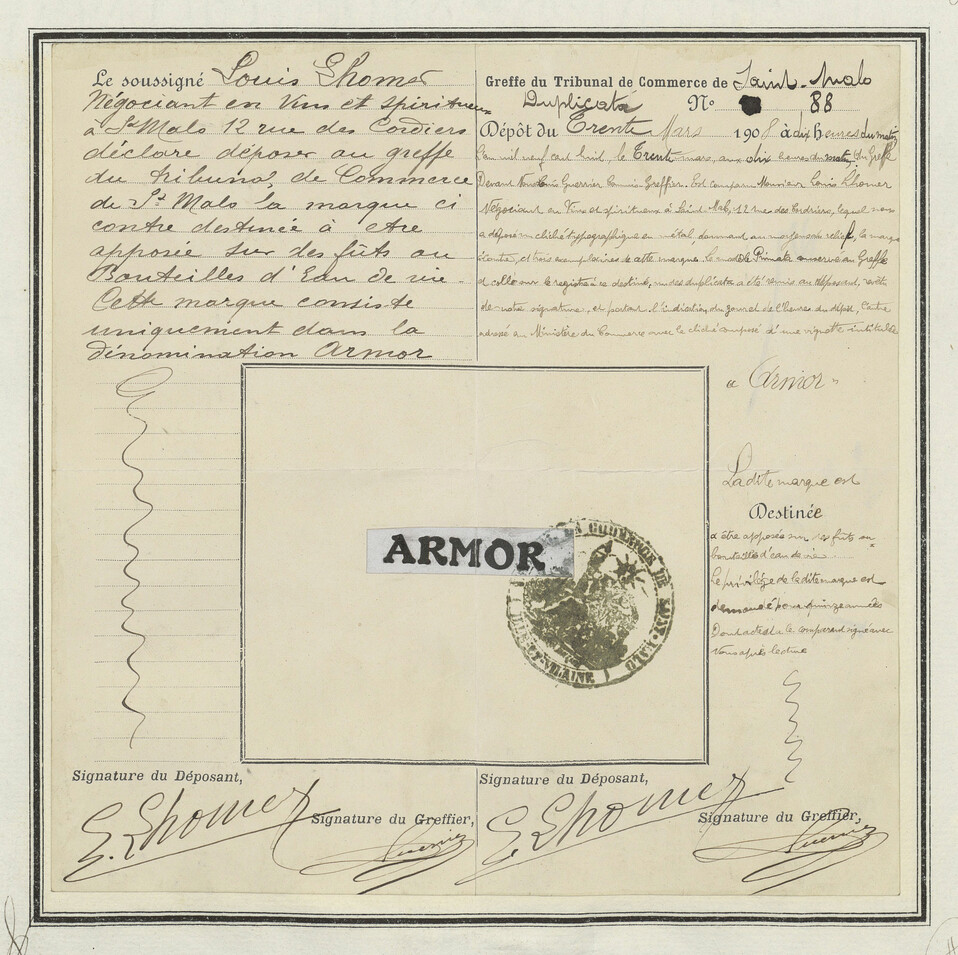 Le soussigné Louis Lhomer
Négociant en Vins et spiritueux
à St Malo 12 rue des Cordiers
déclare déposer au greffe
du tribunal de Commerce
de St Malo la marque ci
contre destinée à etre
apposée sur des fûts ou
Bouteilles d'Eau de vie.
Cette marque consiste
uniquement dans la
dénomination Armor
Greffe du Tribunal de Commerce de Saint-Malo
Duplicata No 88
Dépôt du Trente Mars 1908 à dix heures du matin
L'an mil neuf cent huit, le Trente mars, aux dix heures du matin, du Greffe
Devant Nous Louis Guerrier Commis Greffier. Est comparu Monsieur Louis Lhomer
Négociant en Vins et spiritueux à Saint Malo, 12 rue des Cordiers, lequel nous
a déposé un cliché typographique en métal, donnant au moyen du relief, la marque
ci contre, et trois exemplaires de cette marque. le modèle Primata conservé au Greffe
et collé sur le registre à ce destiné, un des duplicata a été remis au déposant, revêtu
de notre signature, et portant l'indication du jour et de l'heure du dépôt, l'autre
adressé au Ministère du Commerce avec le cliché composé d'une vignette intitulée
« Armor »
La dite marque est
Destinée
a être apposée sur les fûts ou
bouteilles d'eau de vie
Le privilège de la dite marque est
demandé pour quinze années
Dont acte et a le comparant signé avec
Nous après lecture
ARMOR
DE COMMERCE DE SAINT-MALO
ILLE-ET-VILAINE
Signature du Déposant,
Lhomer
Signature du Greffier,
Signature du Déposant,
Lhomer
Signature du Greffier,